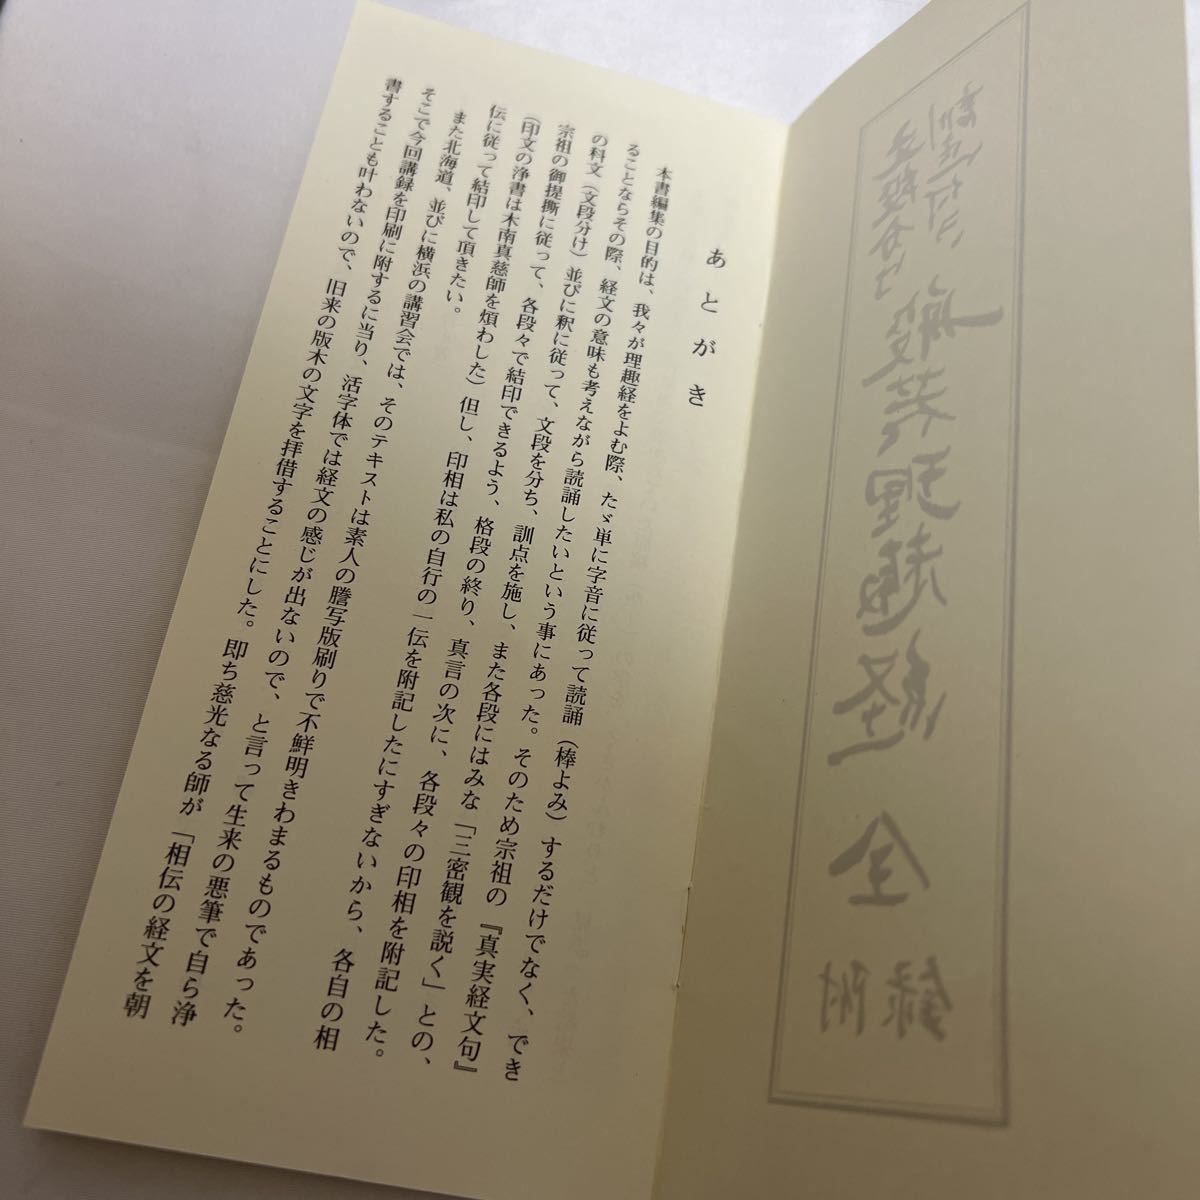 あとがき
本書編集の目的は、我々が理趣経をよむ際、たゞ単に字音に従って読誦（棒よみ）するだけでなく、でき
ることならその際、経文の意味も考えながら読誦したいという事にあった。そのため宗祖の『真実経文句』
の科文（文段分け）並びに釈に従って、文段を分ち、訓点を施し、また各段にはみな「三密観を説く」との、
宗祖の御提撕に従って、各段々で結印できるよう、格段の終り、真言の次に、各段々の印相を附記した。
（印文の浄書は木南真慈師を煩わした）但し、印相は私の自行の一伝を附記したにすぎないから、各自の相
伝に従って結印して頂きたい。
また北海道、並びに横浜の講習会では、そのテキストは素人の謄写版刷りで不鮮明きわまるものであった。
そこで今回講録を印刷に附するに当り、活字体では経文の感じが出ないので、と言って生来の悪筆で自ら浄
書することも叶わないので、旧来の版木の文字を拝借することにした。即ち慈光なる師が「相伝の経文を朝
般若理趣経 全
附録